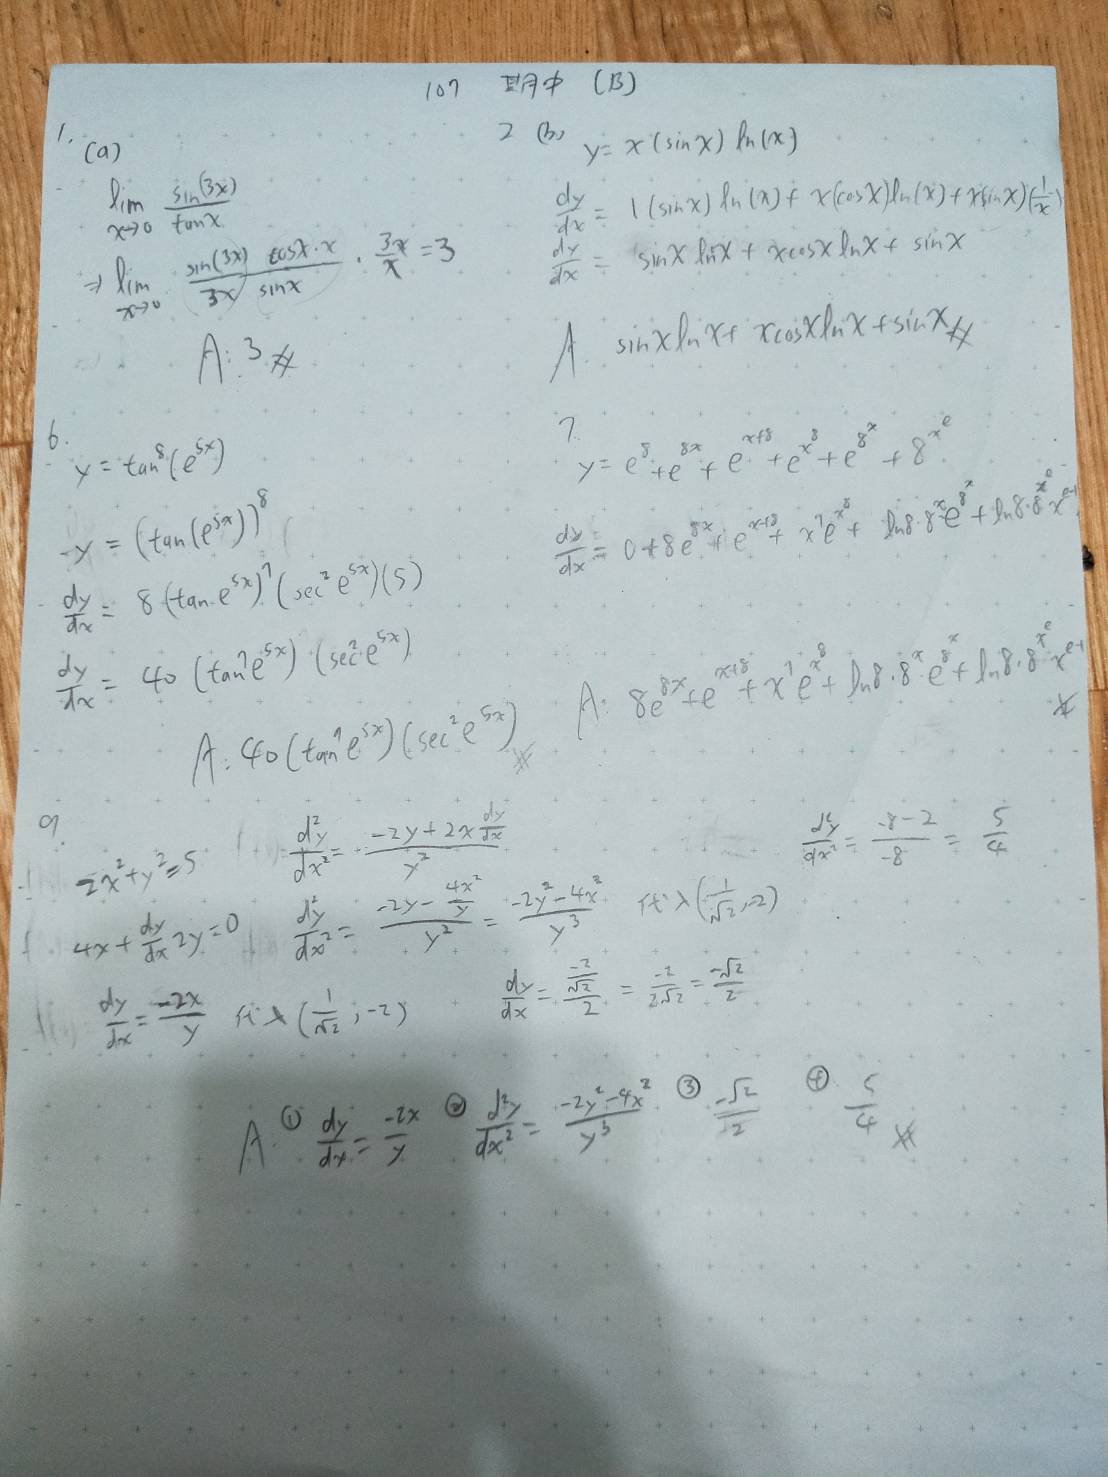 107 期中 (B)
1.
(a)
lim x→0 sin(3x)/tanx
⇒ lim x→0 sin(3x)/3x · cosx·x/sinx · 3x/x = 3
A: 3 #
2 (b)
y = x(sinx) ln(x)
dy/dx = 1(sinx) ln(x) + x(cosx)ln(x) + x(sinx)(1/x)
dy/dx = sinx lnx + xcosx lnx + sinx
A sinx lnx + xcosxlnx + sinx #
6.
y = tan⁸(e^{5x})
y = (tan(e^{5x}))⁸
dy/dx = 8(tan e^{5x})⁷(sec² e^{5x})(5)
dy/dx = 40 (tan⁷e^{5x}) (sec²e^{5x})
A: 40(tan⁷e^{5x})(sec²e^{5x}) #
7.
y = e^8 + e^{8x} + e^{x+8} + e^{x^8} + e^{8^x} + 8^{x^e}
dy/dx = 0 + 8e^{8x} + e^{x+8} + x^7 e^{x^8} + ln8·8^x e^{8^x} + ln8·8^{x^e} x^{e-1}
A: 8e^{8x} + e^{x+8} + x^7 e^{x^8} + ln8·8^x·e^{8^x} + ln8·8^{x^e} x^{e-1} #
9.
2x²+y²=5
4x + dy/dx 2y = 0
dy/dx = -2x/y 代入 (1/√2, -2)
d²y/dx² = (-2y + 2x dy/dx)/y²
d²y/dx² = (-2y - 4x²/y)/y² = (-2y² - 4x²)/y³ 代入 (1/√2, -2)
dy/dx = (-2/√2)/2 = -2/2√2 = -√2/2
d²y/dx² = (-8-2)/-8 = 5/4
A. ① dy/dx = -2x/y ② d²y/dx² = (-2y²-4x²)/y³ ③ -√2/2 ④ 5/4 #